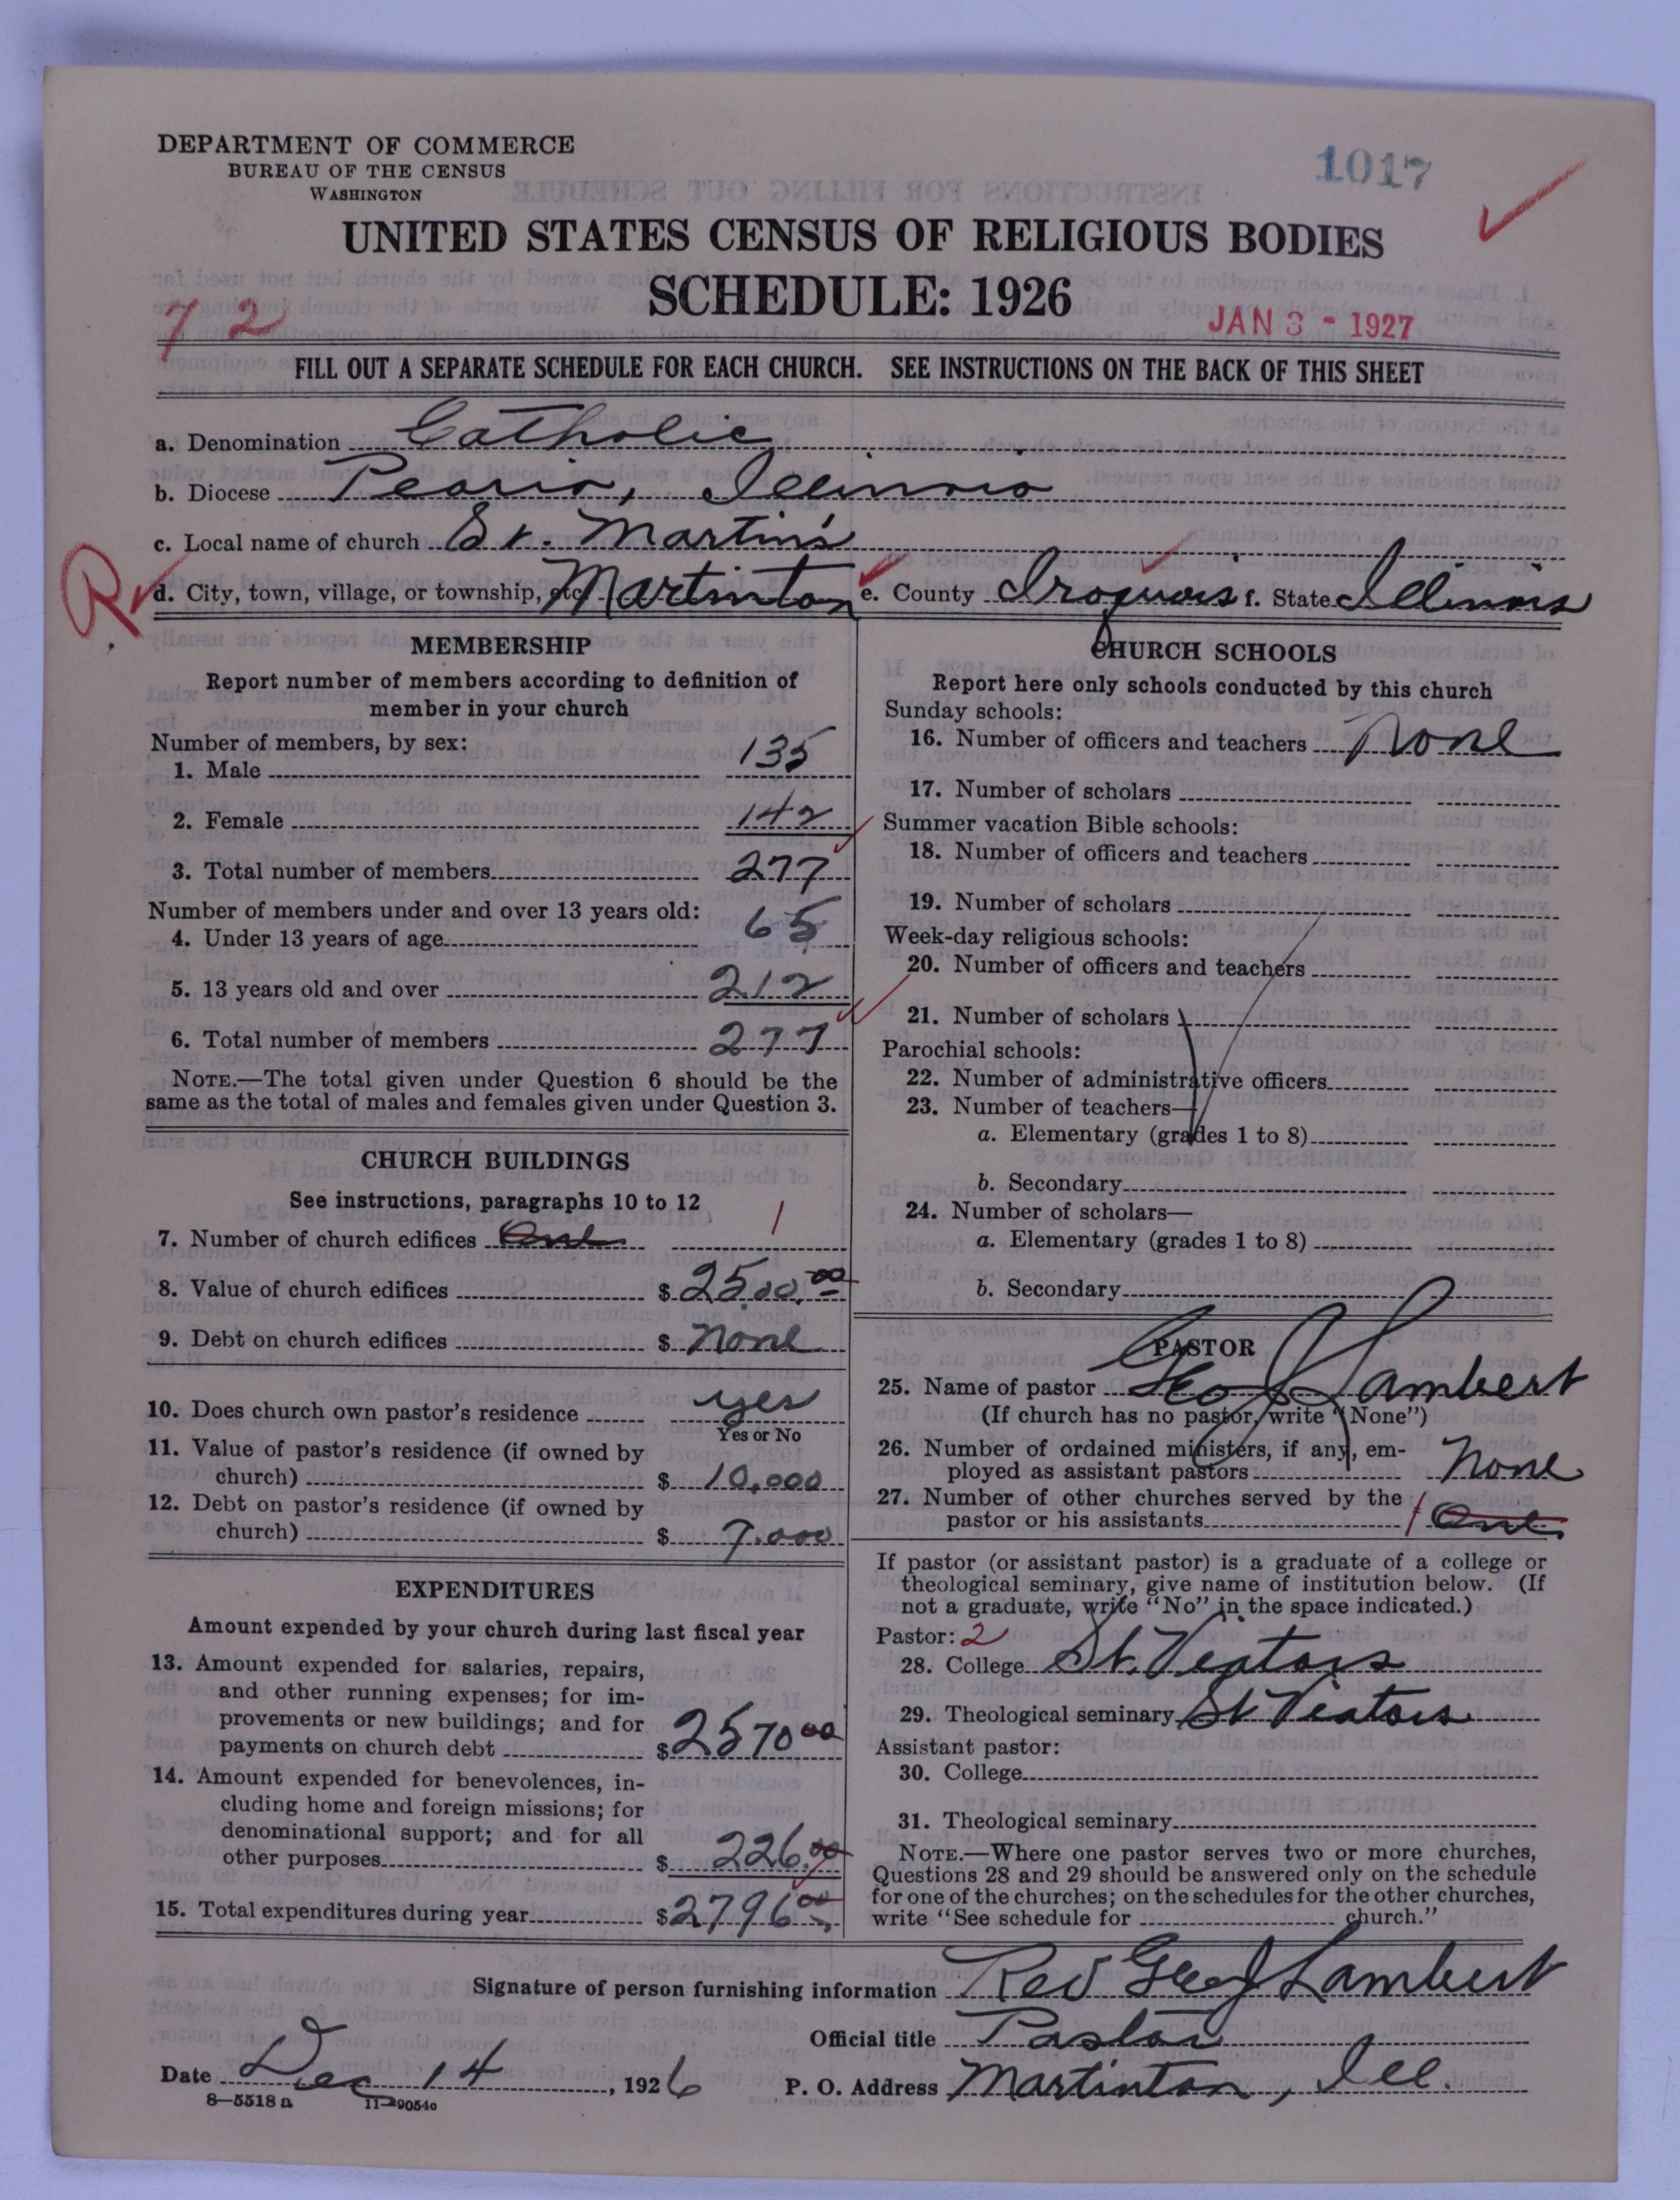 DEPARTMENT OF COMMERCE
BUREAU OF THE CENSUS
WASHINGTON
1017
UNITED STATES CENSUS OF RELIGIOUS BODIES
SCHEDULE: 1926
7 2
JAN 3 - 1927
FILL OUT A SEPARATE SCHEDULE FOR EACH CHURCH. SEE INSTRUCTIONS ON THE BACK OF THIS SHEET
a. Denomination Catholic
b. Diocese Peoria, Illinois
c. Local name of church St. Martin's
R d. City, town, village, or township, etc. Martinton e. County Iroquois f. State Illinois
MEMBERSHIP
Report number of members according to definition of
member in your church
Number of members, by sex:
1. Male 135
2. Female 142
3. Total number of members 277
Number of members under and over 13 years old:
4. Under 13 years of age 65
5. 13 years old and over 212
6. Total number of members 277
NOTE.—The total given under Question 6 should be the
same as the total of males and females given under Question 3.
CHURCH BUILDINGS
See instructions, paragraphs 10 to 12
7. Number of church edifices One 1
8. Value of church edifices $ 2500.00
9. Debt on church edifices $ None
10. Does church own pastor's residence yes
Yes or No
11. Value of pastor's residence (if owned by
church) $ 10,000
12. Debt on pastor's residence (if owned by
church) $ 7.000
EXPENDITURES
Amount expended by your church during last fiscal year
13. Amount expended for salaries, repairs,
and other running expenses; for im-
provements or new buildings; and for
payments on church debt $ 2570 00
14. Amount expended for benevolences, in-
cluding home and foreign missions; for
denominational support; and for all
other purposes $ 226.00
15. Total expenditures during year $ 2796 00
CHURCH SCHOOLS
Report here only schools conducted by this church
Sunday schools:
16. Number of officers and teachers None
17. Number of scholars
Summer vacation Bible schools:
18. Number of officers and teachers
19. Number of scholars
Week-day religious schools:
20. Number of officers and teachers
21. Number of scholars
Parochial schools:
22. Number of administrative officers
23. Number of teachers—
a. Elementary (grades 1 to 8)
b. Secondary
24. Number of scholars—
a. Elementary (grades 1 to 8)
b. Secondary
PASTOR
25. Name of pastor Geo J Lambert
(If church has no pastor, write "None")
26. Number of ordained ministers, if any, em-
ployed as assistant pastors None
27. Number of other churches served by the
pastor or his assistants 1 One
If pastor (or assistant pastor) is a graduate of a college or
theological seminary, give name of institution below. (If
not a graduate, write "No" in the space indicated.)
Pastor: 2
28. College St. Viators
29. Theological seminary St Viators
Assistant pastor:
30. College
31. Theological seminary
NOTE.—Where one pastor serves two or more churches,
Questions 28 and 29 should be answered only on the schedule
for one of the churches; on the schedules for the other churches,
write "See schedule for church."
Signature of person furnishing information Rev Geo J Lambert
Official title Pastor
Date Dec 14, 1926 P. O. Address Martinton, Ill.
8—5518 a 11—9054c